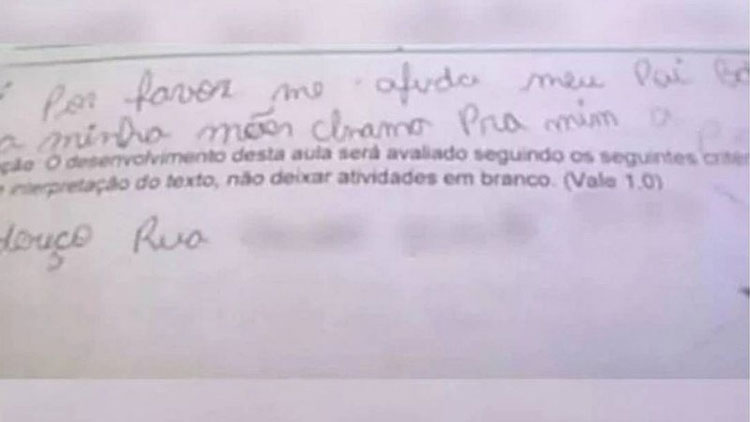 Por favor me ajuda meu Pai Ba
a minha mãe chama Pra mim a
ção O desenvolvimento desta aula será avaliado seguindo os seguintes crité
interpretação do texto, não deixar atividades em branco. (Vale 1.0)
Rua